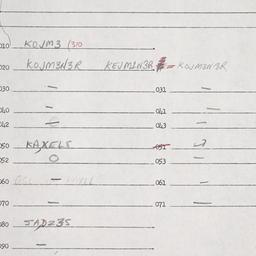 010 KOJM3 (310
020 KOJM3N3R KEJM1N3R = KOJM3N3R
030 — 031 —
040 — 041 —
042 — 043 —
050 KAXELS 051
052 O 053 —
060 — 061 —
070 — 071 —
080 JADZ3S
090 —